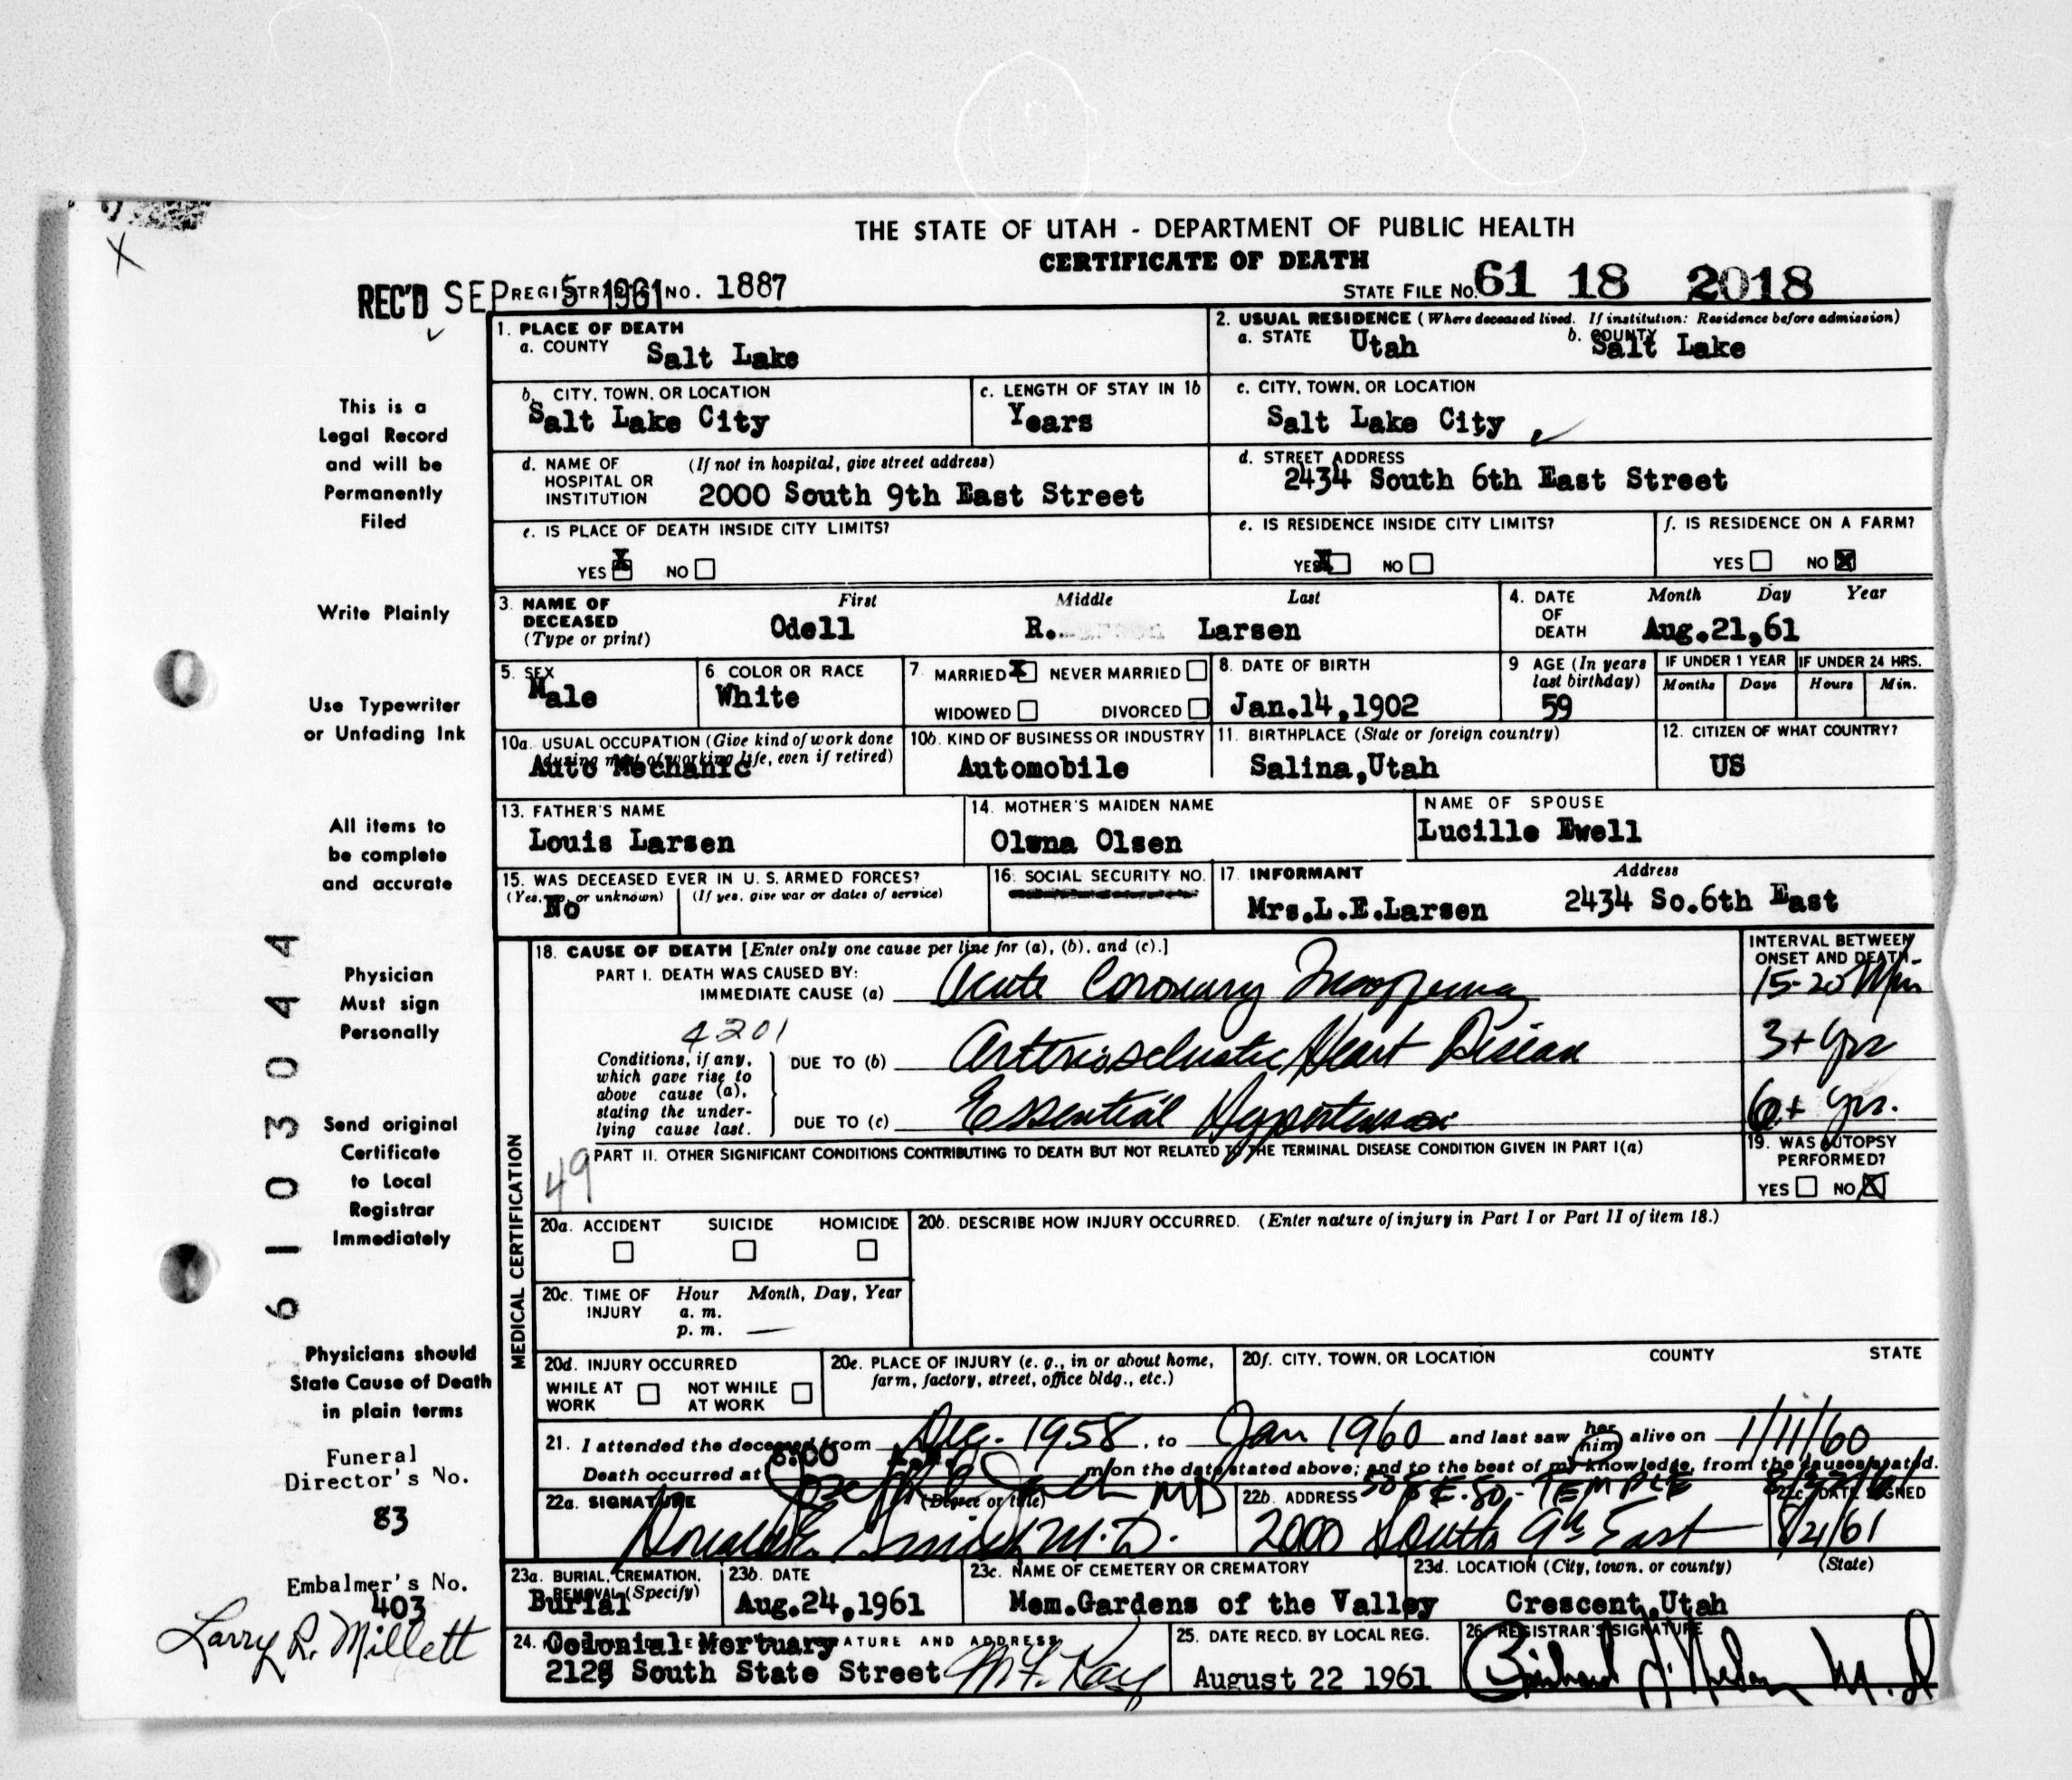 THE STATE OF UTAH - DEPARTMENT OF PUBLIC HEALTH
CERTIFICATE OF DEATH
REC'D SEP 5 1961 REGISTRAR'S NO. 1887
STATE FILE NO. 61 18 2018
1. PLACE OF DEATH
a. COUNTY Salt Lake
2. USUAL RESIDENCE (Where deceased lived. If institution: Residence before admission)
a. STATE Utah b. COUNTY Salt Lake
b. CITY, TOWN, OR LOCATION Salt Lake City
c. LENGTH OF STAY IN 1b Years
c. CITY, TOWN, OR LOCATION Salt Lake City
d. NAME OF HOSPITAL OR INSTITUTION (If not in hospital, give street address)
2000 South 9th East Street
d. STREET ADDRESS
2434 South 6th East Street
e. IS PLACE OF DEATH INSIDE CITY LIMITS?
YES X NO
e. IS RESIDENCE INSIDE CITY LIMITS?
YES X NO
f. IS RESIDENCE ON A FARM?
YES NO X
3. NAME OF DECEASED (Type or print)
First Middle Last
Odell R. Larsen
4. DATE OF DEATH Month Day Year
Aug.21,61
5. SEX Male
6. COLOR OR RACE White
7. MARRIED X NEVER MARRIED
WIDOWED DIVORCED
8. DATE OF BIRTH Jan.14,1902
9 AGE (In years last birthday) 59
IF UNDER 1 YEAR Months Days
IF UNDER 24 HRS. Hours Min.
10a. USUAL OCCUPATION (Give kind of work done during most of working life, even if retired)
Auto Mechanic
10b. KIND OF BUSINESS OR INDUSTRY Automobile
11. BIRTHPLACE (State or foreign country) Salina,Utah
12. CITIZEN OF WHAT COUNTRY? US
13. FATHER'S NAME Louis Larsen
14. MOTHER'S MAIDEN NAME Olena Olsen
NAME OF SPOUSE Lucille Ewell
15. WAS DECEASED EVER IN U. S. ARMED FORCES?
(Yes, no, or unknown) (If yes, give war or dates of service)
No
16. SOCIAL SECURITY NO.
17. INFORMANT Address
Mrs.L.E.Larsen 2434 So.6th East
MEDICAL CERTIFICATION
18. CAUSE OF DEATH [Enter only one cause per line for (a), (b), and (c).]
INTERVAL BETWEEN ONSET AND DEATH
PART I. DEATH WAS CAUSED BY:
IMMEDIATE CAUSE (a) Acute Coronary 15-20 Min
4201
Conditions, if any, which gave rise to above cause (a), stating the underlying cause last.
DUE TO (b) Arteriosclerotic Heart Disease 3+ yrs
DUE TO (c) Essential Hypertension 6+ yrs.
49
PART II. OTHER SIGNIFICANT CONDITIONS CONTRIBUTING TO DEATH BUT NOT RELATED TO THE TERMINAL DISEASE CONDITION GIVEN IN PART I(a)
19. WAS AUTOPSY PERFORMED?
YES NO X
20a. ACCIDENT SUICIDE HOMICIDE
20b. DESCRIBE HOW INJURY OCCURRED. (Enter nature of injury in Part I or Part II of item 18.)
20c. TIME OF INJURY Hour Month, Day, Year
a. m.
p. m.
20d. INJURY OCCURRED
WHILE AT WORK NOT WHILE AT WORK
20e. PLACE OF INJURY (e. g., in or about home, farm, factory, street, office bldg., etc.)
20f. CITY, TOWN, OR LOCATION COUNTY STATE
21. I attended the deceased from Dec. 1958, to Jan 1960 and last saw her him alive on 1/11/60
Death occurred at 8:00 A.M. m on the date stated above; and to the best of my knowledge, from the causes stated.
22a. SIGNATURE (Degree or title) MD
M.D.
22b. ADDRESS 508 E. SO. TEMPLE
2000 South 9th East
22c. DATE SIGNED
8/21/61
23a. BURIAL, CREMATION, REMOVAL (Specify) Burial
23b. DATE Aug.24,1961
23c. NAME OF CEMETERY OR CREMATORY Mem.Gardens of the Valley
23d. LOCATION (City, town, or county) (State)
Crescent,Utah
24. SIGNATURE AND ADDRESS
Colonial Mortuary
2128 South State Street
25. DATE RECD. BY LOCAL REG. August 22 1961
26. REGISTRAR'S SIGNATURE
M.D
X
This is a
Legal Record
and will be
Permanently
Filed
Write Plainly
Use Typewriter
or Unfading Ink
All items to
be complete
and accurate
Physician
Must sign
Personally
Send original
Certificate
to Local
Registrar
Immediately
Physicians should
State Cause of Death
in plain terms
Funeral
Director's No.
83
Embalmer's No.
403
Larry R. Millett
6 1 0 3 0 4 4